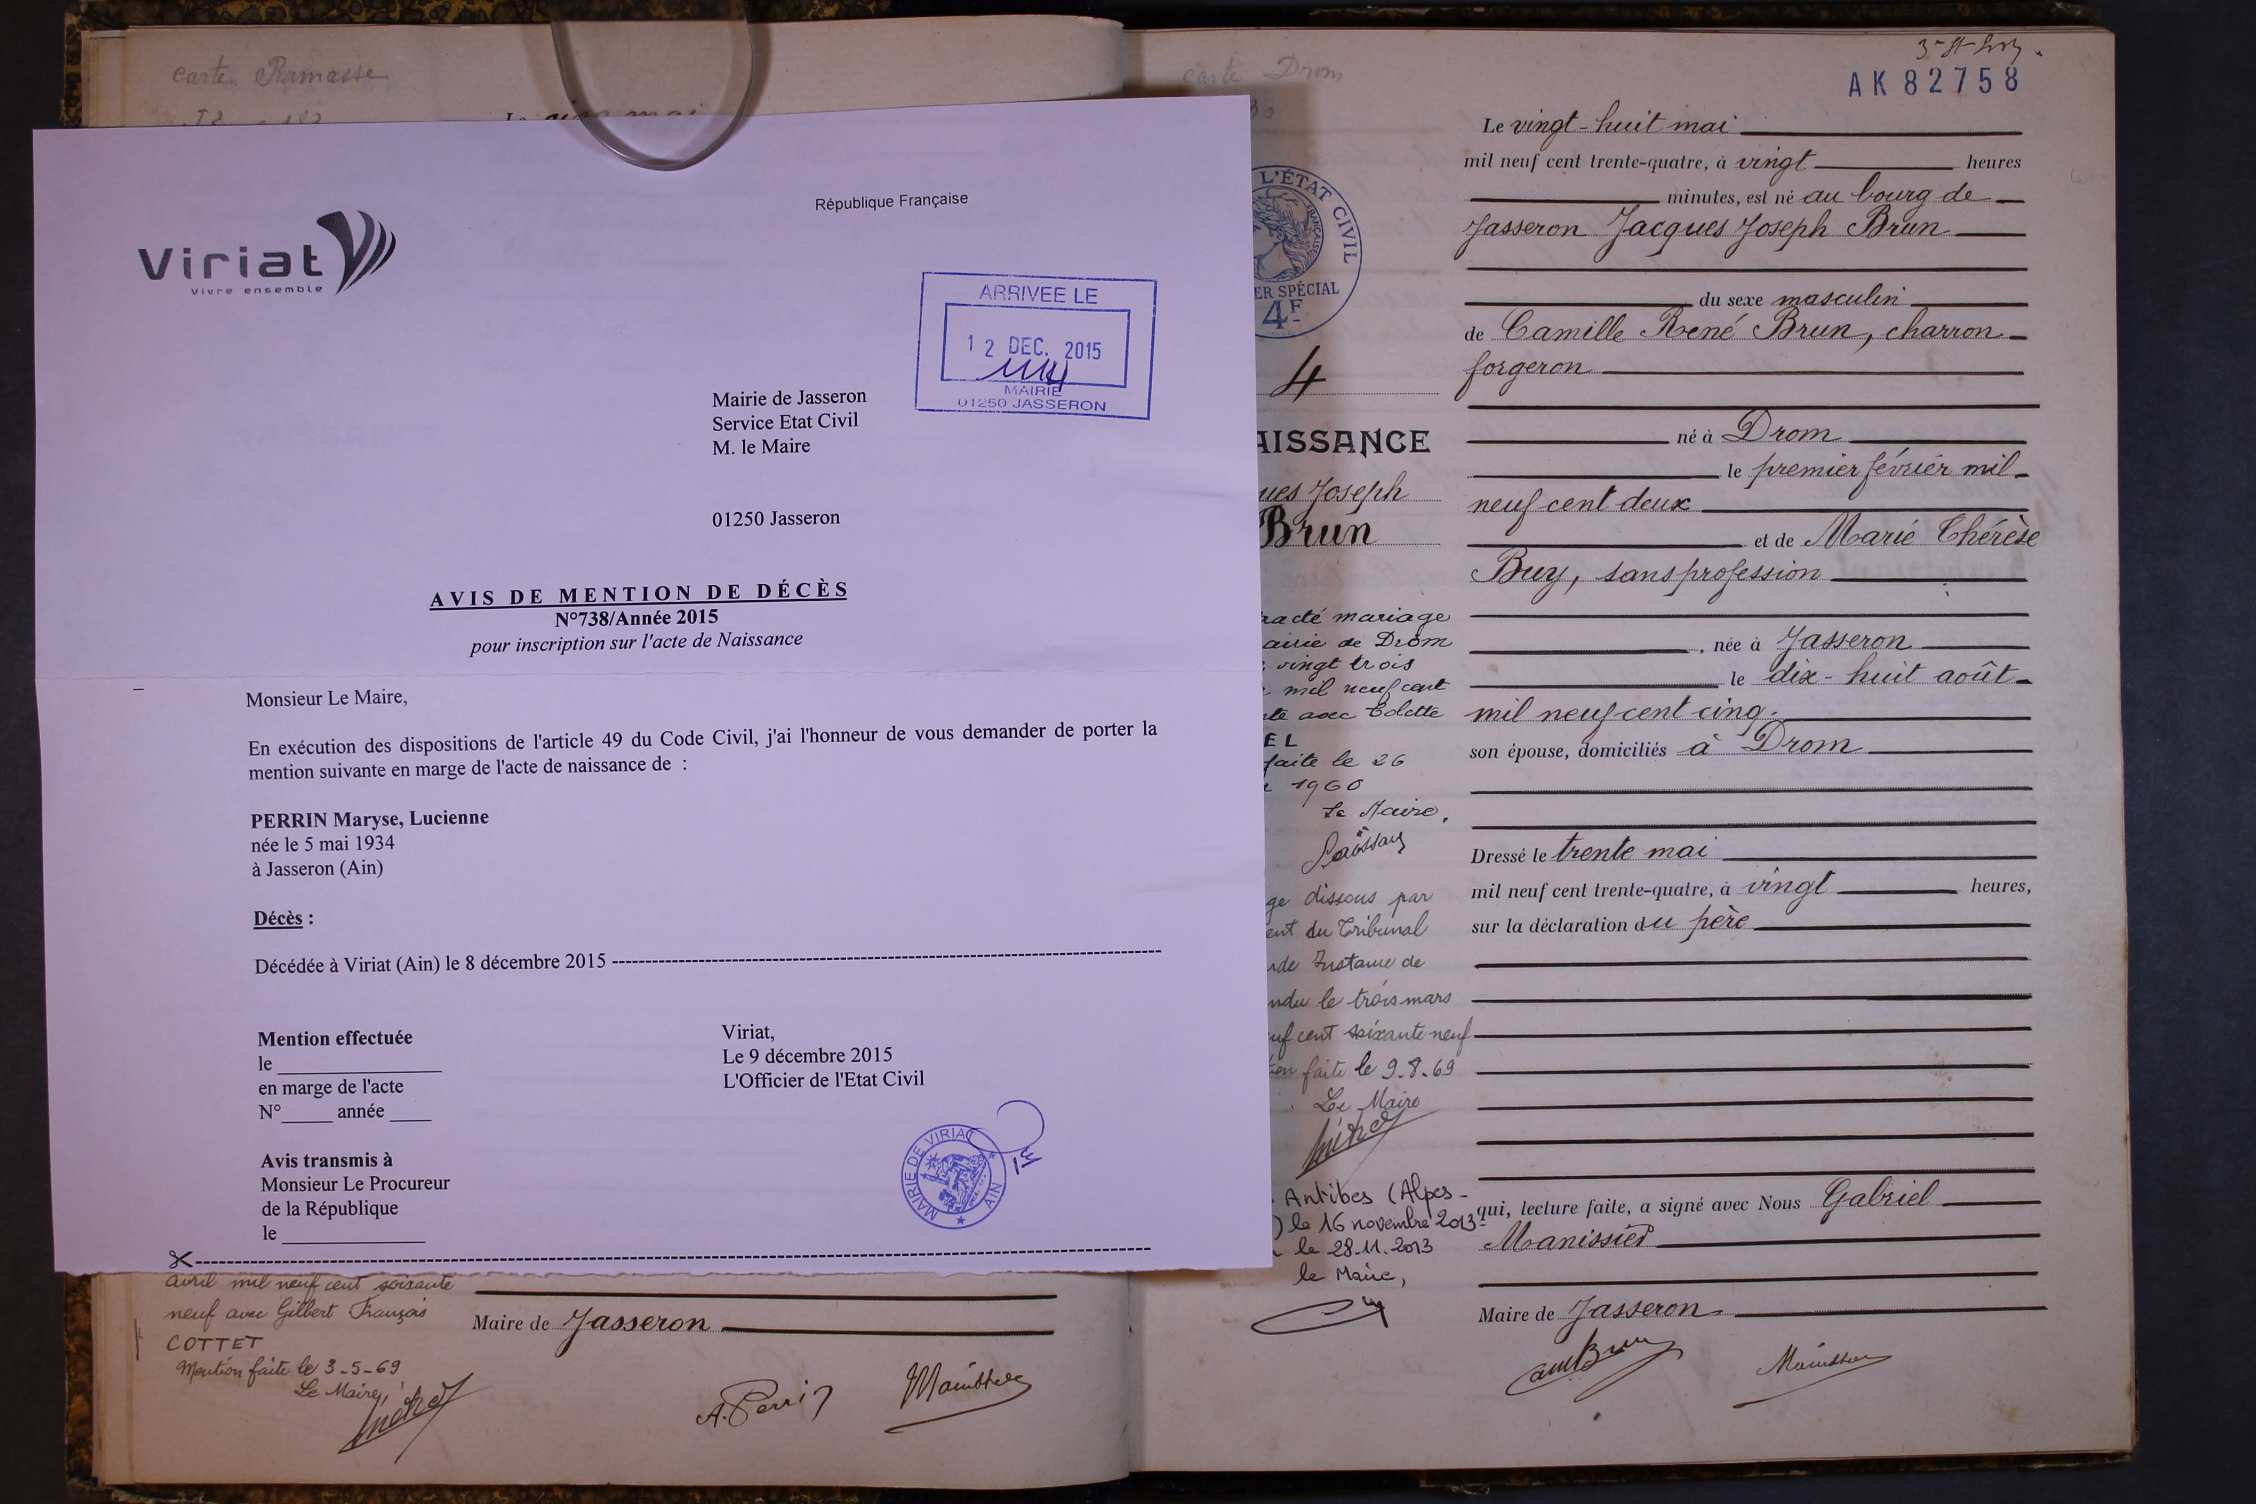 carte Ramasse
Le cinq mai
République Française
Viriat
Vivre ensemble
ARRIVEE LE
12 DEC. 2015
MAIRIE
01250 JASSERON
Mairie de Jasseron
Service Etat Civil
M. le Maire
01250 Jasseron
AVIS DE MENTION DE DÉCÈS
N°738/Année 2015
pour inscription sur l'acte de Naissance
Monsieur Le Maire,
En exécution des dispositions de l'article 49 du Code Civil, j'ai l'honneur de vous demander de porter la
mention suivante en marge de l'acte de naissance de :
PERRIN Maryse, Lucienne
née le 5 mai 1934
à Jasseron (Ain)
Décès :
Décédée à Viriat (Ain) le 8 décembre 2015
Mention effectuée
le
en marge de l'acte
N° année
Avis transmis à
Monsieur Le Procureur
de la République
le
Viriat,
Le 9 décembre 2015
L'Officier de l'Etat Civil
MAIRIE DE VIRIAT
AIN
avril mil neuf cent soixante
neuf avec Gilbert François
COTTET
Mention faite le 3-5-69
Le Maire,
Maire de Jasseron
A. Perrin
carte Drom
L'ÉTAT CIVIL
SPÉCIAL
4F
4
AISSANCE
ues Joseph
Brun
racté mariage
airie de Drom
vingt trois
mil neuf cent
te avec Colette
EL
faite le 26
1960
Le Maire,
ge dissous par
ent du Tribunal
nde Instance de
ndu le trois mars
uf cent soixante neuf
ion faite le 9-8-69
Le Maire
Antibes (Alpes-
) le 16 novembre 2013
le 28.11.2013
le Maire,
AK 82758
Le vingt-huit mai
mil neuf cent trente-quatre, à vingt heures
minutes, est né au bourg de
Jasseron Jacques Joseph Brun
du sexe masculin
de Camille René Brun, charron
forgeron
né à Drom
le premier février mil
neuf cent deux
et de Marie Thérèse
Buy, sans profession
, née à Jasseron
le dix-huit août
mil neuf cent cinq.
son épouse, domiciliés à Drom
Dressé le trente mai
mil neuf cent trente-quatre, à vingt heures,
sur la déclaration du père
qui, lecture faite, a signé avec Nous Gabriel
Manissier
Maire de Jasseron